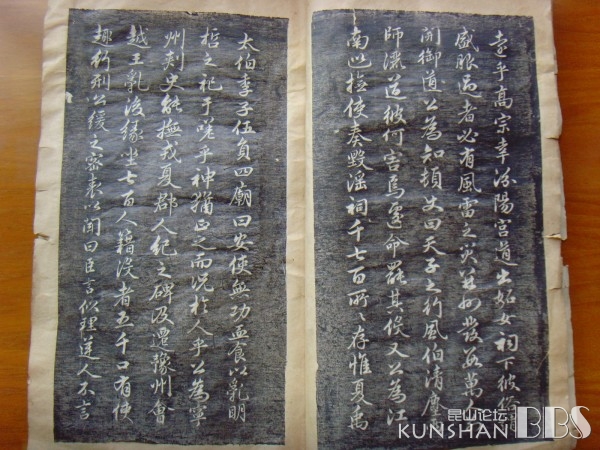 乎高宗幸汾陽宮道出妬女祠下彼俗謂
盛服過者必有風雷之災并州發數萬人
開御道公為知頓史曰天子之行風伯清塵雨
師灑道彼何害焉遽命罷其役又公為江
南巡撿使奏毀淫祠千七百所〻存惟夏禹
太伯季子伍員四廟曰安使無功血食以亂明
哲之祀于嗟乎神猶正之而況於人乎公為寧
州刺史能撫戎夏郡人紀之碑及遷豫州會
越王亂後緣坐七百人籍沒者五千口有使
趣行刑公緩之密表以聞曰臣言似理逆人不言
昆山论坛
KUNSHAN BBS